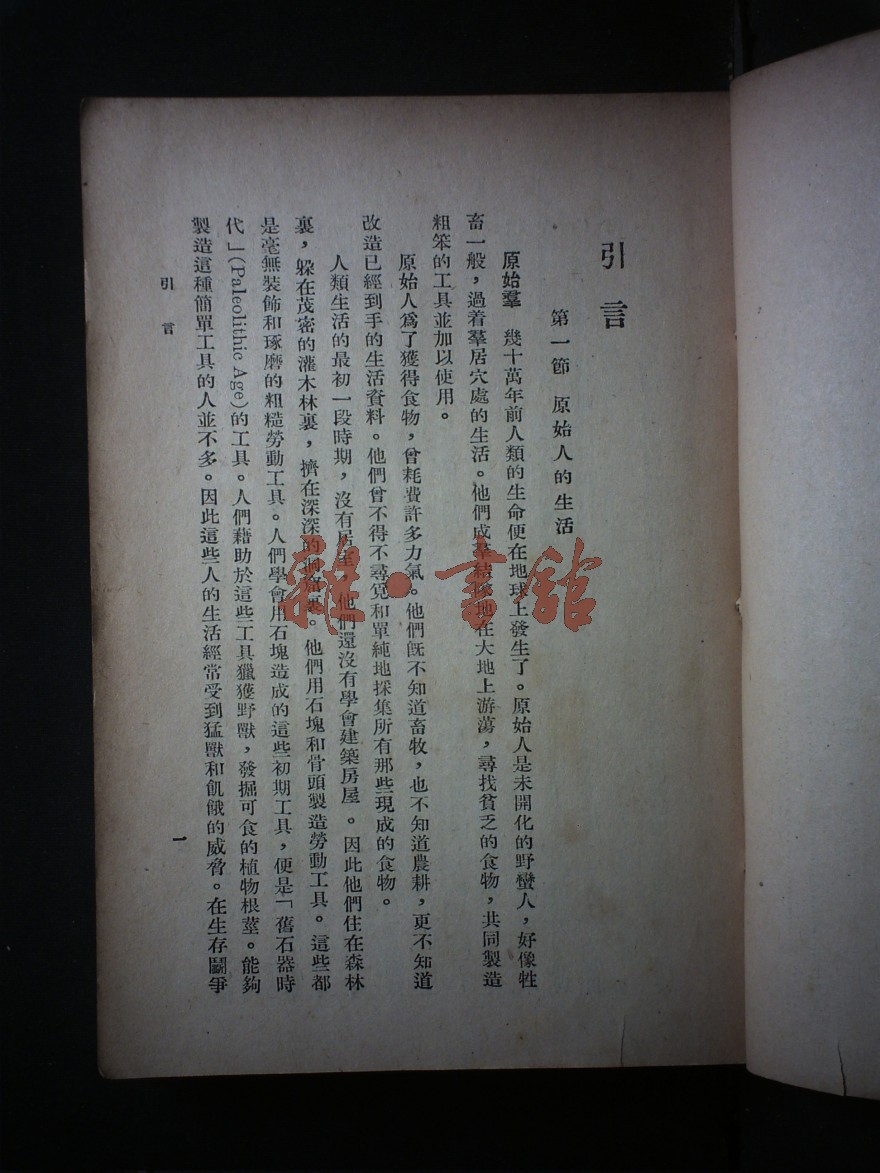 引言
第一節 原始人的生活
原始羣 幾十萬年前人類的生命便在地球上發生了。原始人是未開化的野蠻人，好像牲
畜一般，過着羣居穴處的生活。他們成羣結隊地在大地上游蕩，尋找貧乏的食物，共同製造
粗笨的工具並加以使用。
原始人爲了獲得食物，曾耗費許多力氣。他們旣不知道畜牧，也不知道農耕，更不知道
改造已經到手的生活資料。他們曾不得不尋覓和單純地採集所有那些現成的食物。
人類生活的最初一段時期，沒有居室，他們還沒有學會建築房屋。因此他們住在森林
裏，躲在茂密的灌木林裏，擠在深深的洞窟裏。他們用石塊和骨頭製造勞動工具。這些都
是毫無裝飾和琢磨的粗糙勞動工具。人們學會用石塊造成的這些初期工具，便是「舊石器時
代」(Paleolithic Age)的工具。人們藉助於這些工具獵獲野獸，發掘可食的植物根莖。能夠
製造這種簡單工具的人並不多。因此這些人的生活經常受到猛獸和飢餓的威脅。在生存鬭爭
引言
一
雜·書館